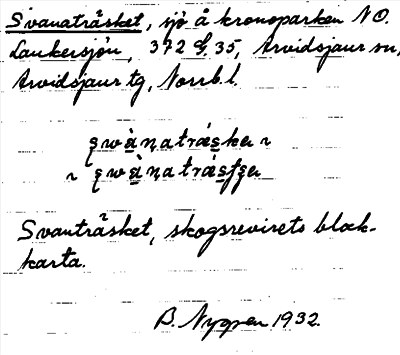 Svanaträsket, sjö å kronoparken NO.
Laukersjön, 372 G. 35, Arvidsjaur sn,
Arvidsjaur tg, Norrb. l.
Svanträsket, skogsrevirets block-
karta.
B. Nyppen 1932.